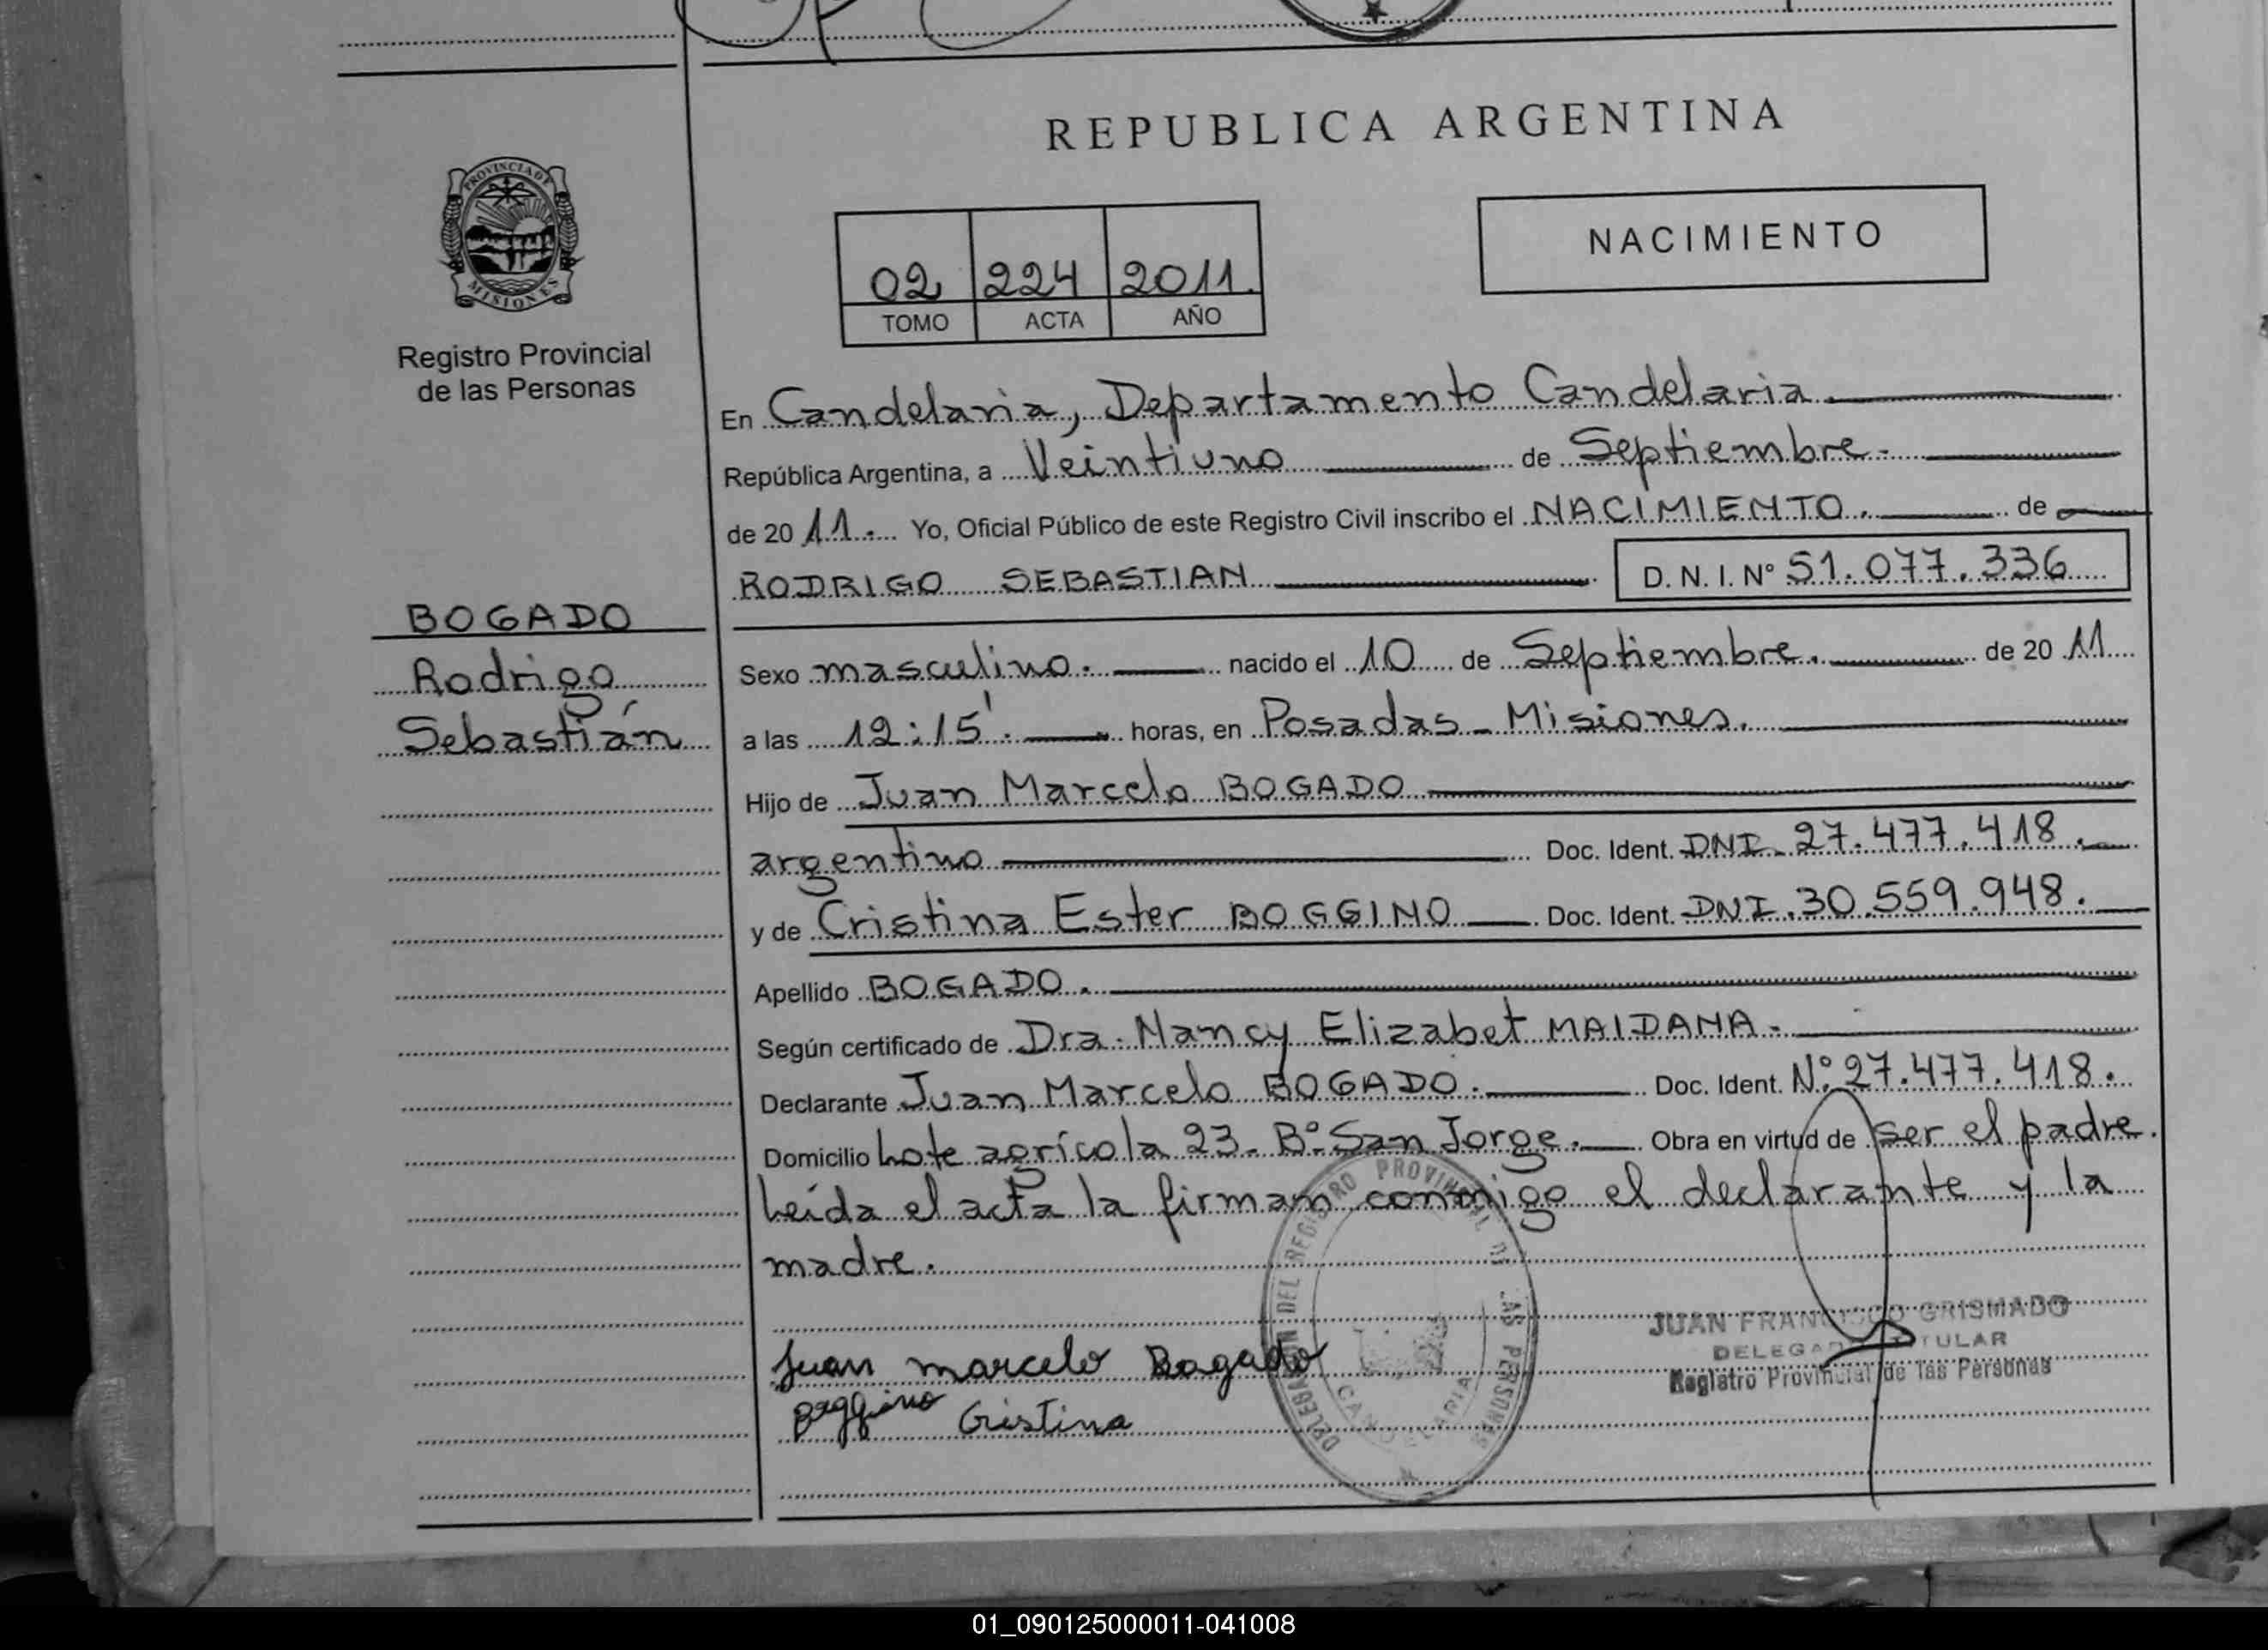 REPUBLICA ARGENTINA
PROVINCIA DE
MISIONES
Registro Provincial
de las Personas
NACIMIENTO
02 224 2011.
TOMO ACTA AÑO
En Candelaria, Departamento Candelaria.
República Argentina, a Veintiuno de Septiembre.
de 2011. Yo, Oficial Público de este Registro Civil inscribo el NACIMIENTO. de
RODRIGO SEBASTIAN D. N. I. N° 51.077.336
BOGADO
Rodrigo
Sebastián
Sexo masculino. nacido el 10 de Septiembre. de 2011
a las 12:15'. horas, en Posadas - Misiones.
Hijo de Juan Marcelo BOGADO
argentino Doc. Ident. DNI. 27.477.418.
y de Cristina Ester BOGGINO Doc. Ident. DNI. 30.559.948.
Apellido BOGADO.
Según certificado de Dra. Nancy Elizabet MAIDANA.
Declarante Juan Marcelo BOGADO. Doc. Ident. N° 27.477.418.
Domicilio Lote agrícola 23. B° San Jorge. Obra en virtud de ser el padre.
Leída el acta la firman conmigo el declarante y la
madre.
DELEGACION DEL REGISTRO PROVINCIAL DE LAS PERSONAS
CANDELARIA
JUAN FRANCISCO GRISMADO
DELEGADO TITULAR
Registro Provincial de las Personas
Juan Marcelo Bogado
Boggino Cristina
01_090125000011-041008